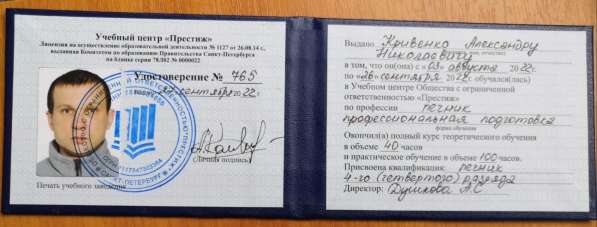 Учебный центр «Престиж»
Лицензия на осуществление образовательной деятельности № 1127 от 26.08.14 г.,
выданная Комитетом по образованию Правительства Санкт-Петербурга
на бланке серии 78Л02 № 0000022
Удостоверение № 765
сентября 2022 г.
(Личная подпись)
Печать учебного заведения
Выдано Кривенко Александру
Николаевичу
в том, что он(она) с «03» августа 2022 г.
по «26» сентября 2022 г. обучался(лась)
в Учебном центре Общества с ограниченной
ответственностью «Престиж»
по профессии речник
профессиональная подготовка
форма обучения
Окончил(а) полный курс теоретического обучения
в объеме 40 часов
и практическое обучение в объеме 100 часов.
Присвоена квалификация: речник
4-го (четвертого) разряда
Директор: А.С.